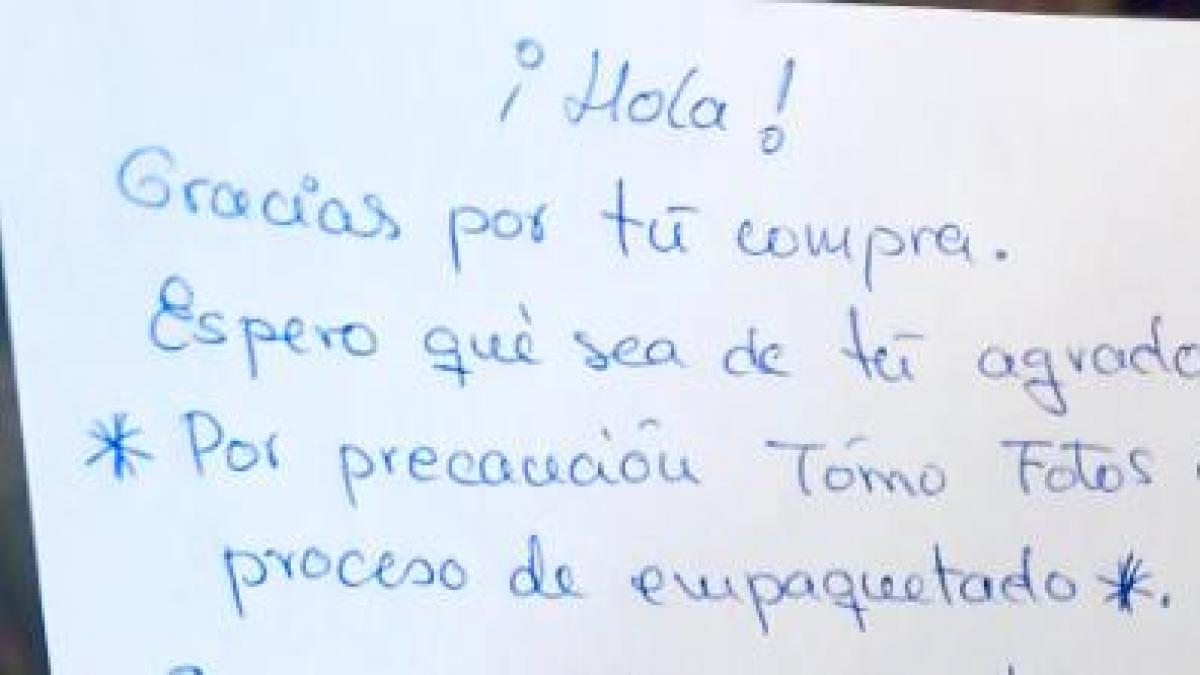 ¡Hola!
Gracias por tú compra.
Espero qué sea de tú agrado
* Por precaución Tómo Fotos
proceso de empaquetado *.